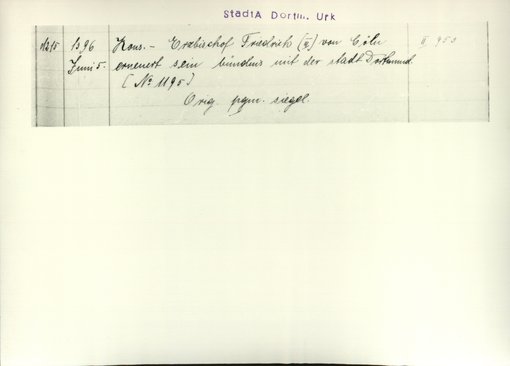 StadtA Dortm. Urk
1215 1396 Kons. - Erzbischof Friedrich (3) von Cöln II 953
Juni 5. erneuert sein bündnis mit der stadt Dortmund
[No 1195]
Orig. pgm. siegel.